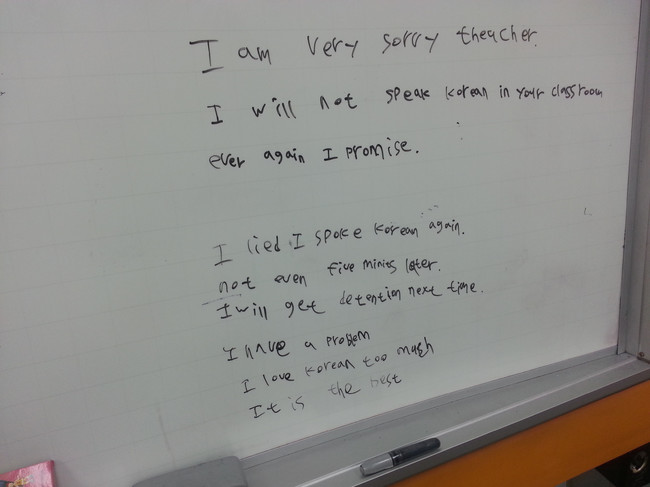 I am very sorry theacher.
I will not speak korean in your classroom
ever again I promise.
I lied I spoke korean again.
not even five minits later.
I will get detention next time.
I have a problem
I love korean too mach
It is the best